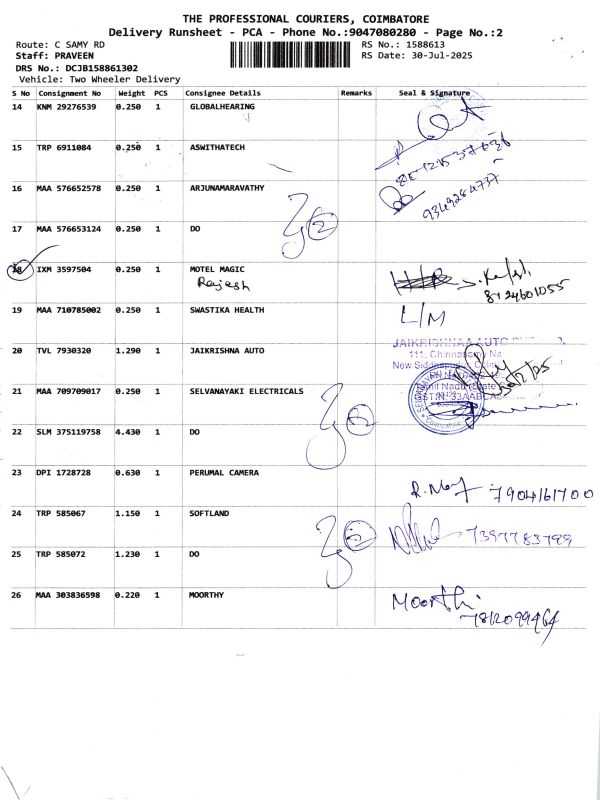 THE PROFESSIONAL COURIERS, COIMBATORE
Delivery Runsheet - PCA - Phone No.:9047080280 - Page No.:2
Route: C SAMY RD RS No.: 1588613
Staff: PRAVEEN RS Date: 30-Jul-2025
DRS No.: DCJB158861302
Vehicle: Two Wheeler Delivery
S No Consignment No Weight PCS Consignee Details Remarks Seal & Signature
14 KNM 29276539 0.250 1 GLOBALHEARING
15 TRP 6911084 0.250 1 ASWITHATECH
16 MAA 576652578 0.250 1 ARJUNAMARAVATHY
9349284737
17 MAA 576653124 0.250 1 DO
2
18 IXM 3597504 0.250 1 MOTEL MAGIC
Rajesh
8124601055
19 MAA 710785002 0.250 1 SWASTIKA HEALTH L/M
20 TVL 7930320 1.290 1 JAIKRISHNA AUTO
JAIKRISHNAA AUTO
21 MAA 709709017 0.250 1 SELVANAYAKI ELECTRICALS
22 SLM 375119758 4.430 1 DO
23 DPI 1728728 0.630 1 PERUMAL CAMERA
7904161700
24 TRP 585067 1.150 1 SOFTLAND
7397783799
25 TRP 585072 1.230 1 DO
26 MAA 303836598 0.220 1 MOORTHY
Moorthi
7812099464